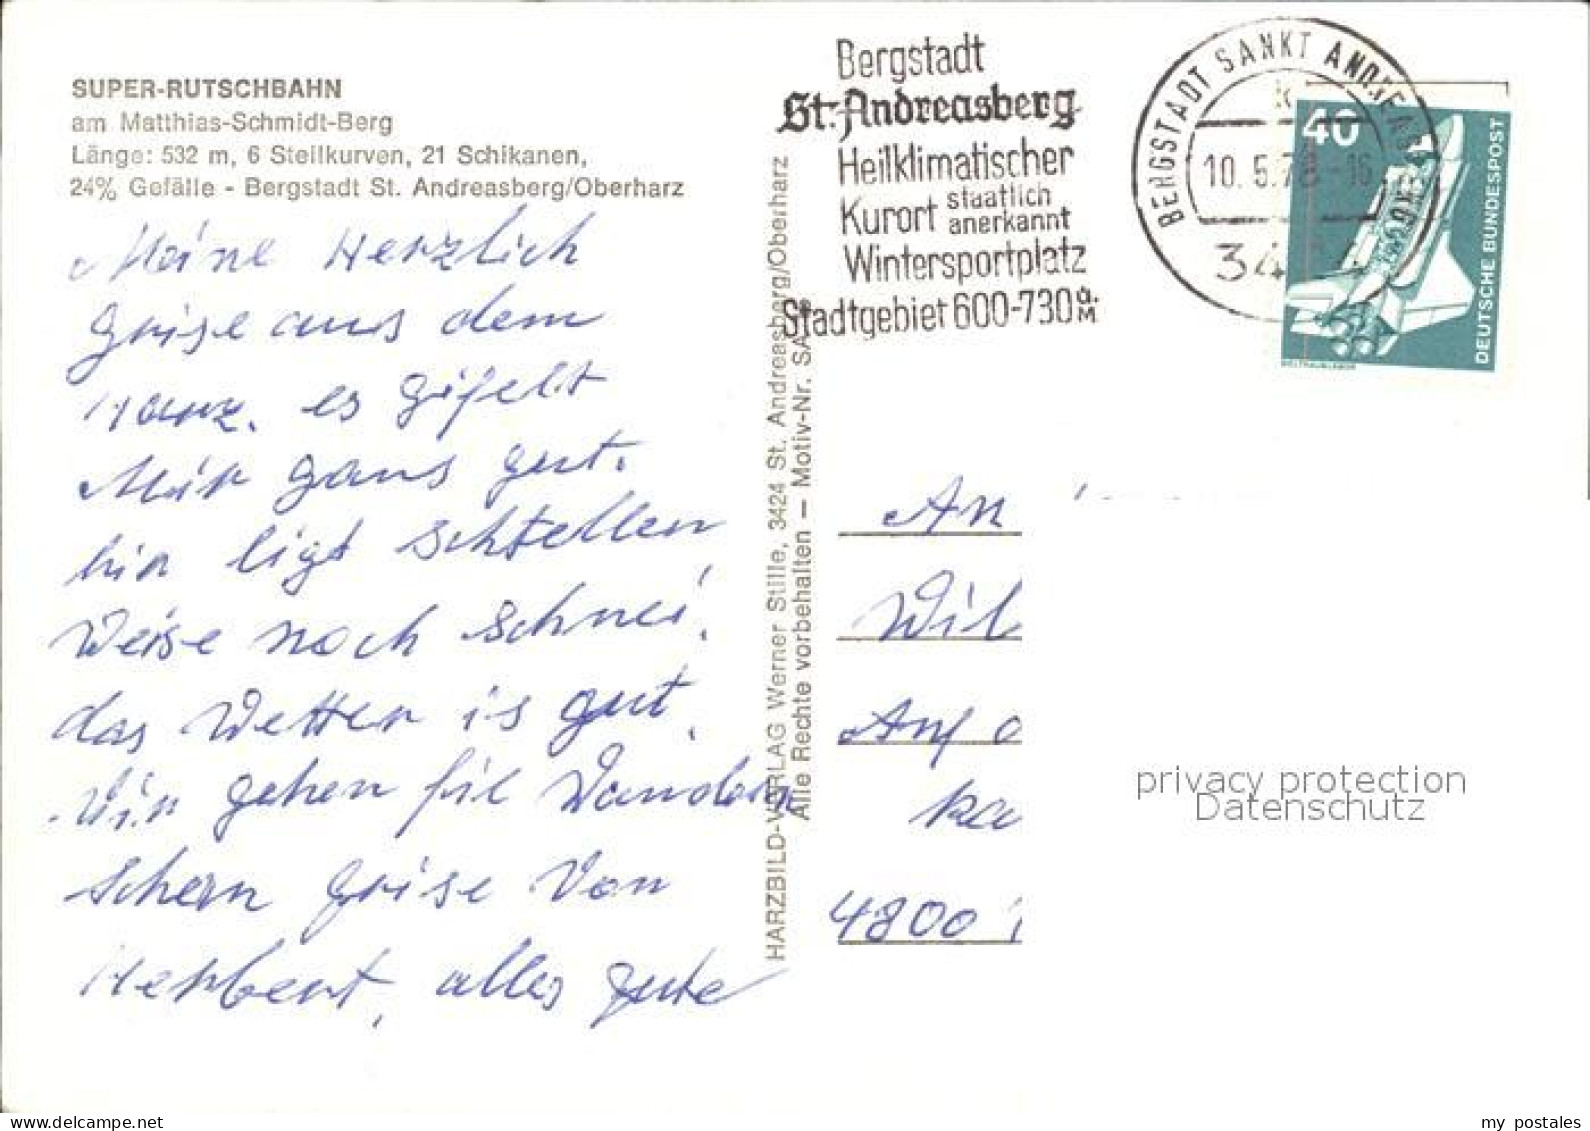 SUPER-RUTSCHBAHN
am Matthias-Schmidt-Berg
Länge: 532 m, 6 Steilkurven, 21 Schikanen,
24% Gefälle - Bergstadt St. Andreasberg/Oberharz
Meine Herzlich
Grise aus dem
Harz. es gefelt
Mir gans gut.
hir ligt schtellen
Weise noch schnei.
das Wetter is gut.
Wir gehen fil Wandern
Schern Grise Von
Herbert, alles gute
HARZBILD-VERLAG Werner Stille, 3424 St. Andreasberg/Oberharz
Alle Rechte vorbehalten — Motiv-Nr. SA
Bergstadt
St. Andreasberg
Heilklimatischer
Kurort staatlich anerkannt
Wintersportplatz
Stadtgebiet 600-730 ü. M
BERGSTADT SANKT ANDREASBERG
k
10.5.78-16
34 4
40
DEUTSCHE BUNDESPOST
WELTRAUMLABOR
An
Wil
Auf
Ka
4800
privacy protection
Datenschutz
my postales